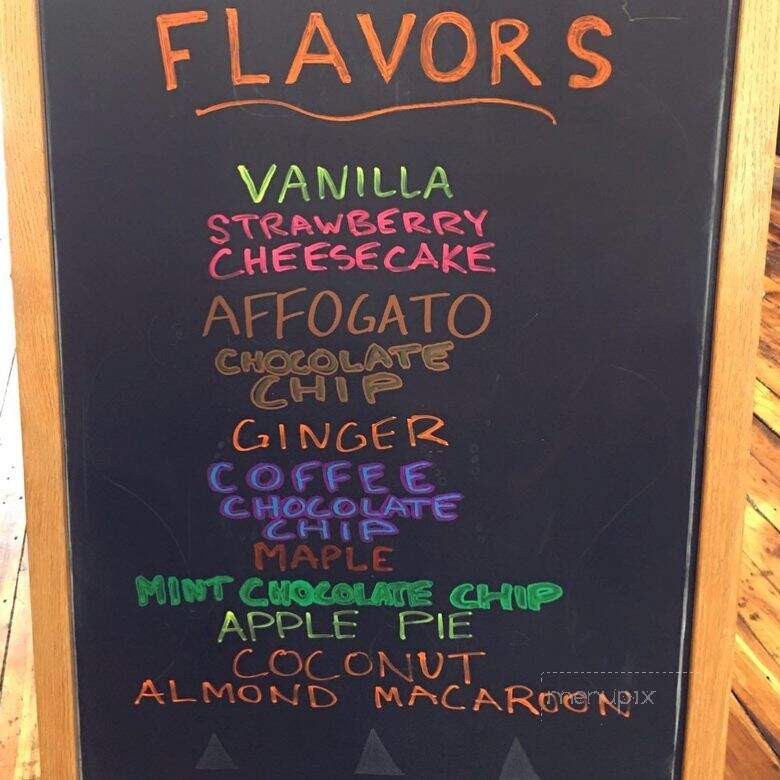 FLAVORS
VANILLA
STRAWBERRY
CHEESECAKE
AFFOGATO
CHOCOLATE
CHIP
GINGER
COFFEE
CHOCOLATE
CHIP
MAPLE
MINT CHOCOLATE CHIP
APPLE PIE
COCONUT
ALMOND MACAROON
menupix